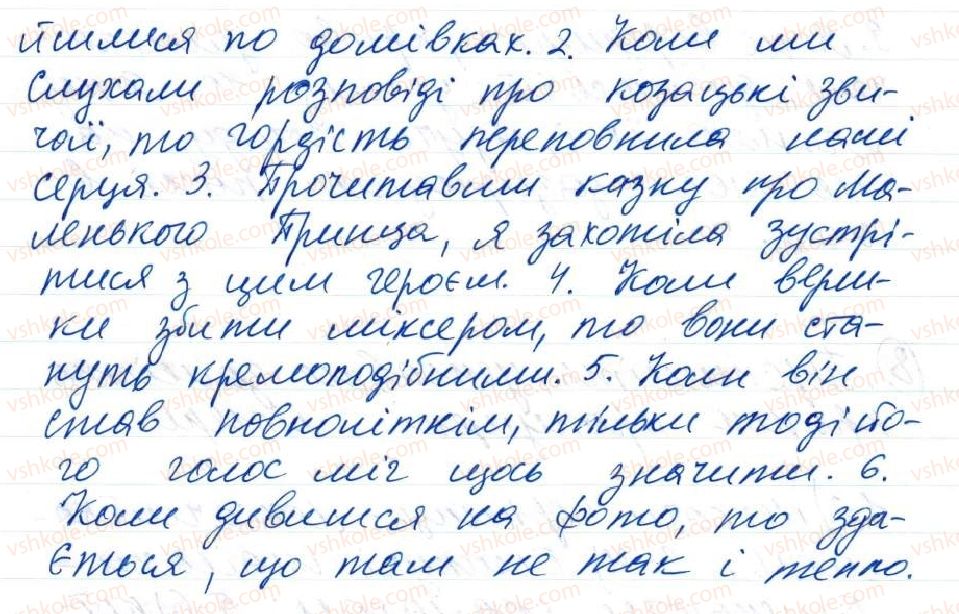 йшлися по домівках. 2. Коли ми
слухали розповіді про козацькі зви-
чаї, то гордість переповнила наші
серця. 3. Прочитавши казку про Ма-
ленького Принца, я захотіла зустрі-
тися з цим героєм. 4. Коли верш-
ки збити міксером, то вони ста-
нуть кремоподібними. 5. Коли він
став повнолітнім, тільки тоді йо-
го голос міг щось значити. 6.
Коли дивишся на фото, то зда-
ється, що там не так і тепло.